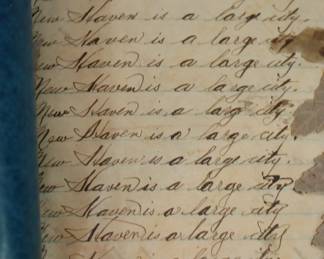 New Haven is a large city.
New Haven is a large city.
New Haven is a large city.
New Haven is a large city.
New Haven is a large city.
New Haven is a large city.
New Haven is a large city.
New Haven is a large city
New Haven is a large city
New Haven is a large city